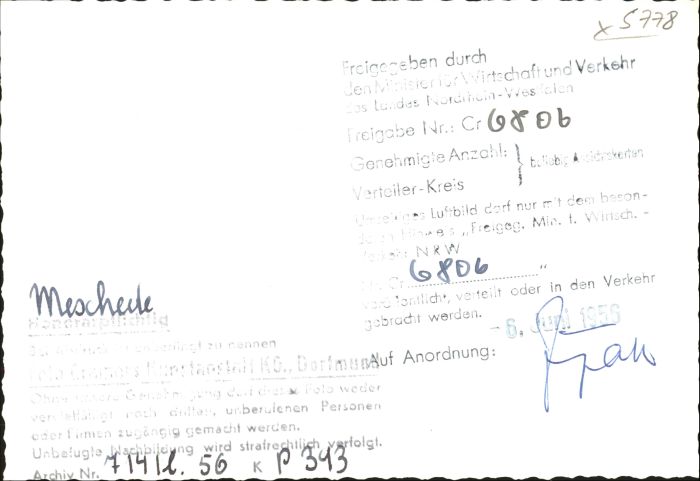 x 5778
Freigegeben durch
den Minister für Wirtschaft und Verkehr
des Landes Nordrhein-Westfalen
Freigabe Nr.: Cr 6806
Genehmigte Anzahl: } beliebig Ansichtskarten
Verteiler-Kreis
Luftbild darf nur mit dem beson-
deren Hinweis „Freigeg. Min. f. Wirtsch. -
Verkehr NRW
Nr. Cr 6806 "
veröffentlicht, verteilt oder in den Verkehr
gebracht werden.
- 6. Juni 1956
Auf Anordnung:
Meschede
Honorarpflichtig
zu nennen
Foto Cramers Kunstanstalt KG., Dortmund
Ohne unsere Genehmigung darf dieses Foto weder
vervielfältigt noch dritten, unberufenen Personen
oder Firmen zugängig gemacht werden.
Unbefugte Nachbildung wird strafrechtlich verfolgt.
Archiv Nr. 56 K P 343